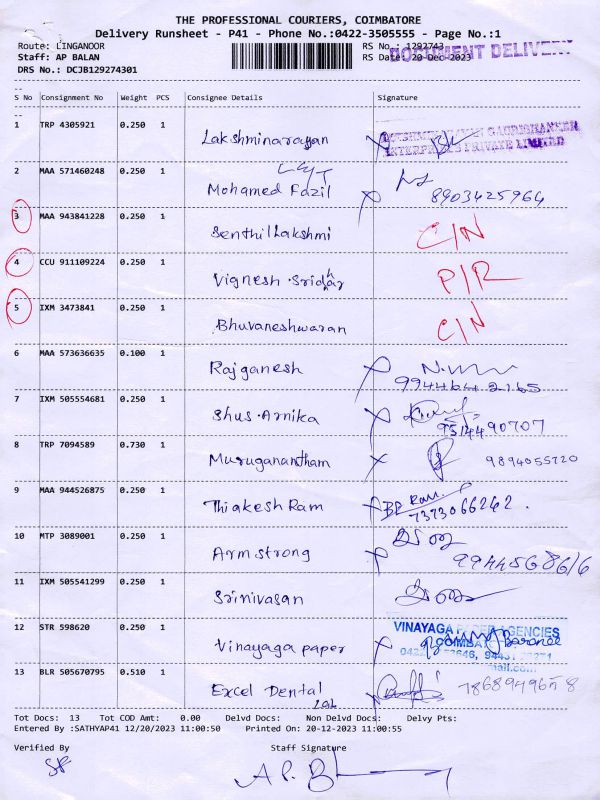 THE PROFESSIONAL COURIERS, COIMBATORE
Delivery Runsheet - P41 - Phone No.:0422-3505555 - Page No.:1
Route: LINGANOOR RS No.: 1292743
DOCUMENT DELIVERY
Staff: AP BALAN RS Date: 20-Dec-2023
DRS No.: DCJB129274301
S No Consignment No Weight PCS Consignee Details Signature
1 TRP 4305921 0.250 1 Lakshminarayan
ENTERPRISES PRIVATE LIMITED
2 MAA 571460248 0.250 1 Mohamed Fazil 8903425964
3 MAA 943841228 0.250 1 Senthil Lakshmi C/N
4 CCU 911109224 0.250 1 Vignesh.Sridhar P/R
5 IXM 3473841 0.250 1 Bhuvaneshwaran C/N
6 MAA 573636635 0.100 1 Rajganesh 9944642165
7 IXM 505554681 0.250 1 Shus.Arnika 9514490707
8 TRP 7094589 0.730 1 Muruganantham 9894055720
9 MAA 944526875 0.250 1 Thiakesh Ram BP Ram
7373066242.
10 MTP 3089001 0.250 1 Armstrong
11 IXM 505541299 0.250 1 Srinivasan
12 STR 598620 0.250 1 Vinayaga paper VINAYAGA PAPER AGENCIES
COIMBATORE
13 BLR 505670795 0.510 1 Excel Dental
Lab
Tot Docs: 13 Tot COD Amt: 0.00 Delvd Docs: Non Delvd Docs: Delvy Pts:
Entered By :SATHYAP41 12/20/2023 11:00:50 Printed On: 20-12-2023 11:00:55
Verified By Staff Signature